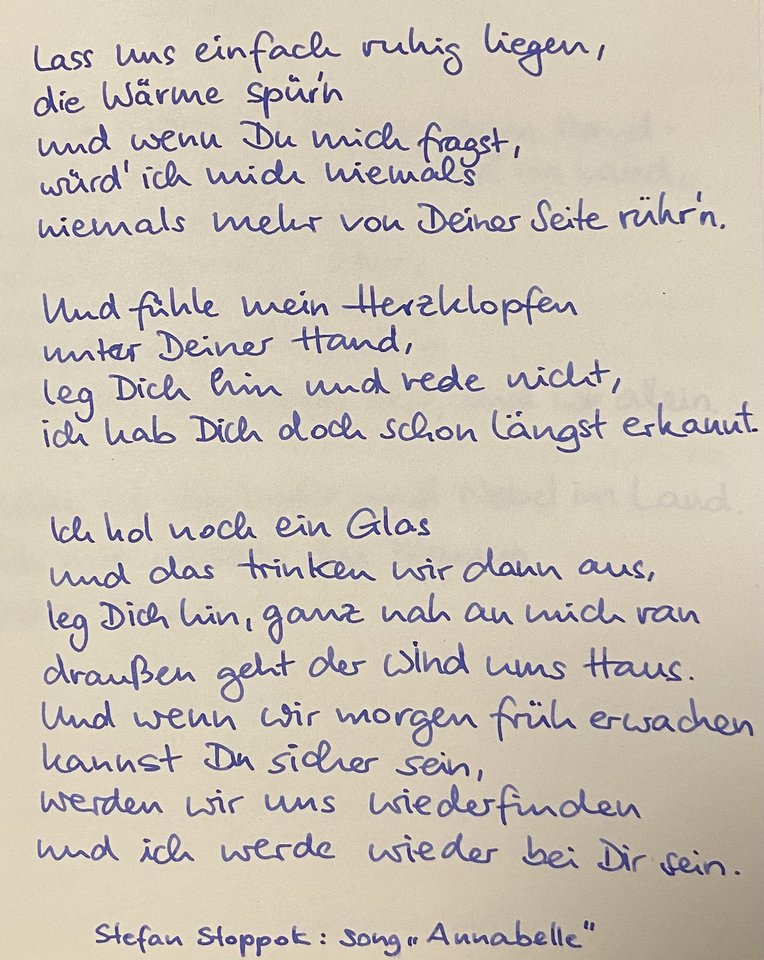 Lass uns einfach ruhig liegen,
die Wärme spür'n
und wenn Du mich fragst,
würd' ich mich niemals
niemals mehr von Deiner Seite rühr'n.
Und fühle mein Herzklopfen
unter Deiner Hand,
leg Dich hin und rede nicht,
ich hab Dich doch schon längst erkannt.
Ich hol noch ein Glas
und das trinken wir dann aus,
leg Dich hin, ganz nah an mich ran
draußen geht der Wind ums Haus.
Und wenn wir morgen früh erwachen
kannst Du sicher sein,
werden wir uns wiederfinden
und ich werde wieder bei Dir sein.
Stefan Stoppok: Song „Annabelle"